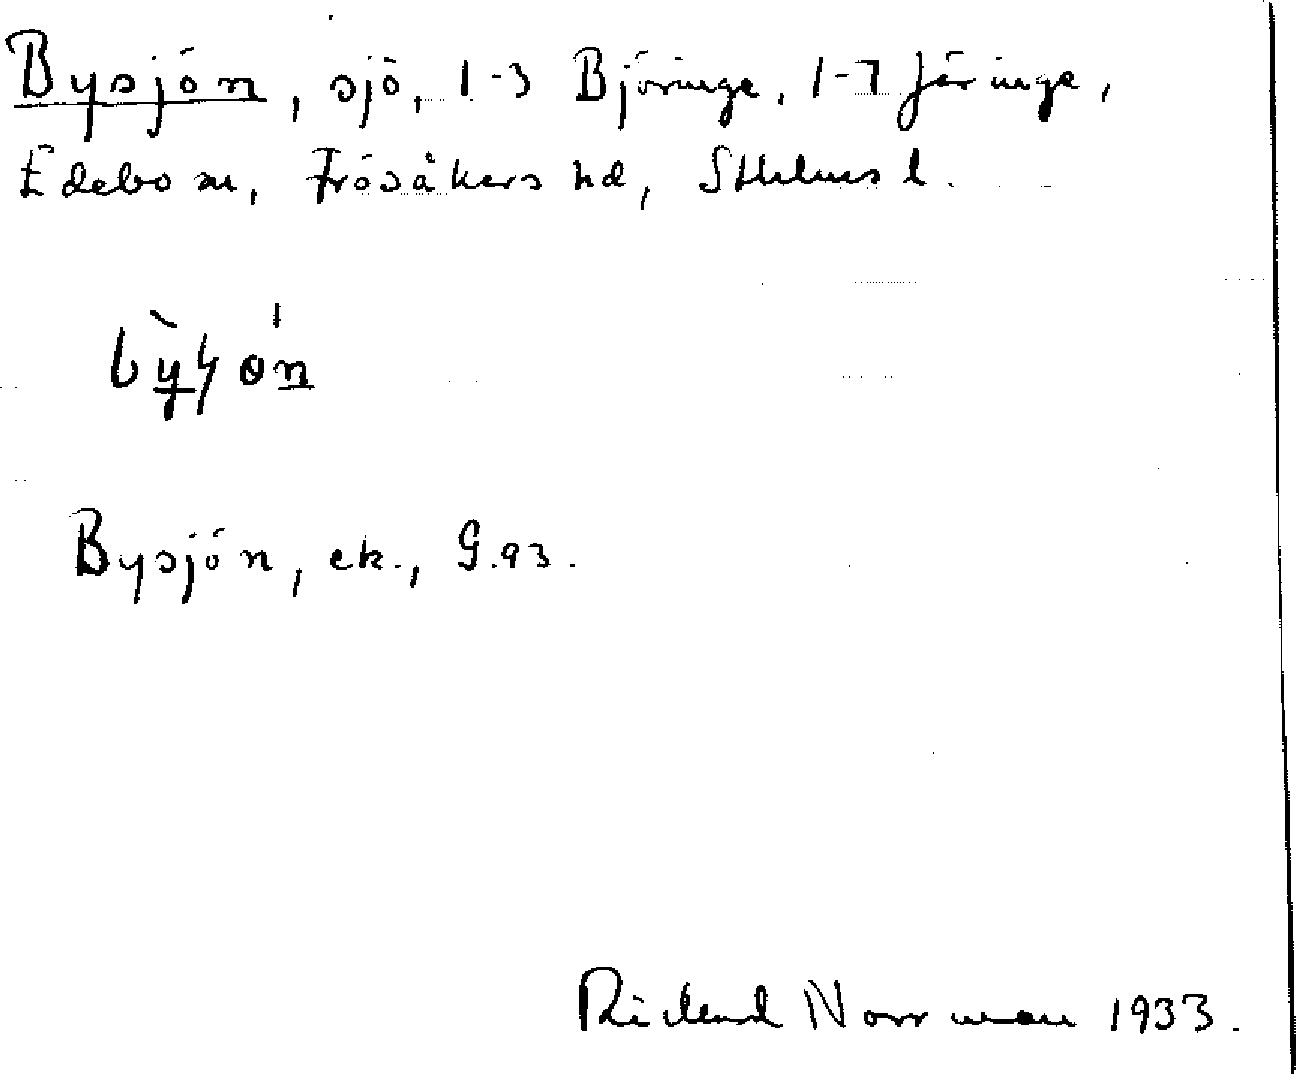 Bysjön, sjö, 1-3 Björinge, 1-7 Järinge,
Edebo sn, Frösåkers hd, Sthlms l.
Bysjön, ek., G.93.
Rickard Norrman 1933.